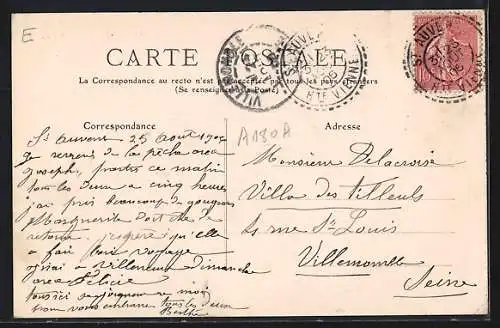 E
CARTE POSTALE
La Correspondance au recto n'est pas acceptée par tous les pays étrangers
(Se renseigner à la Poste)
ST AUVENT
HTE VIENNE
ST AUVENT
HTE VIENNE
VILLEMOMBLE
Correspondance
Adresse
A180A
St Auvent 25 Août 1905
je reviens de la pêche avec
Joseph, partis ce matin
tous les deux a cinq heures
j'ai pris beaucoup de goujons
Marguerite doit être de
retour j'espère qu'elle
a fait bon voyage
à Villemomble dimanche
avec Félicie
tous ici se joignent a moi
pour vous embrasser tous les deux
Berthe
Monsieur Delacroix
Villa des tilleuls
rue St Louis
Villemomble
Seine